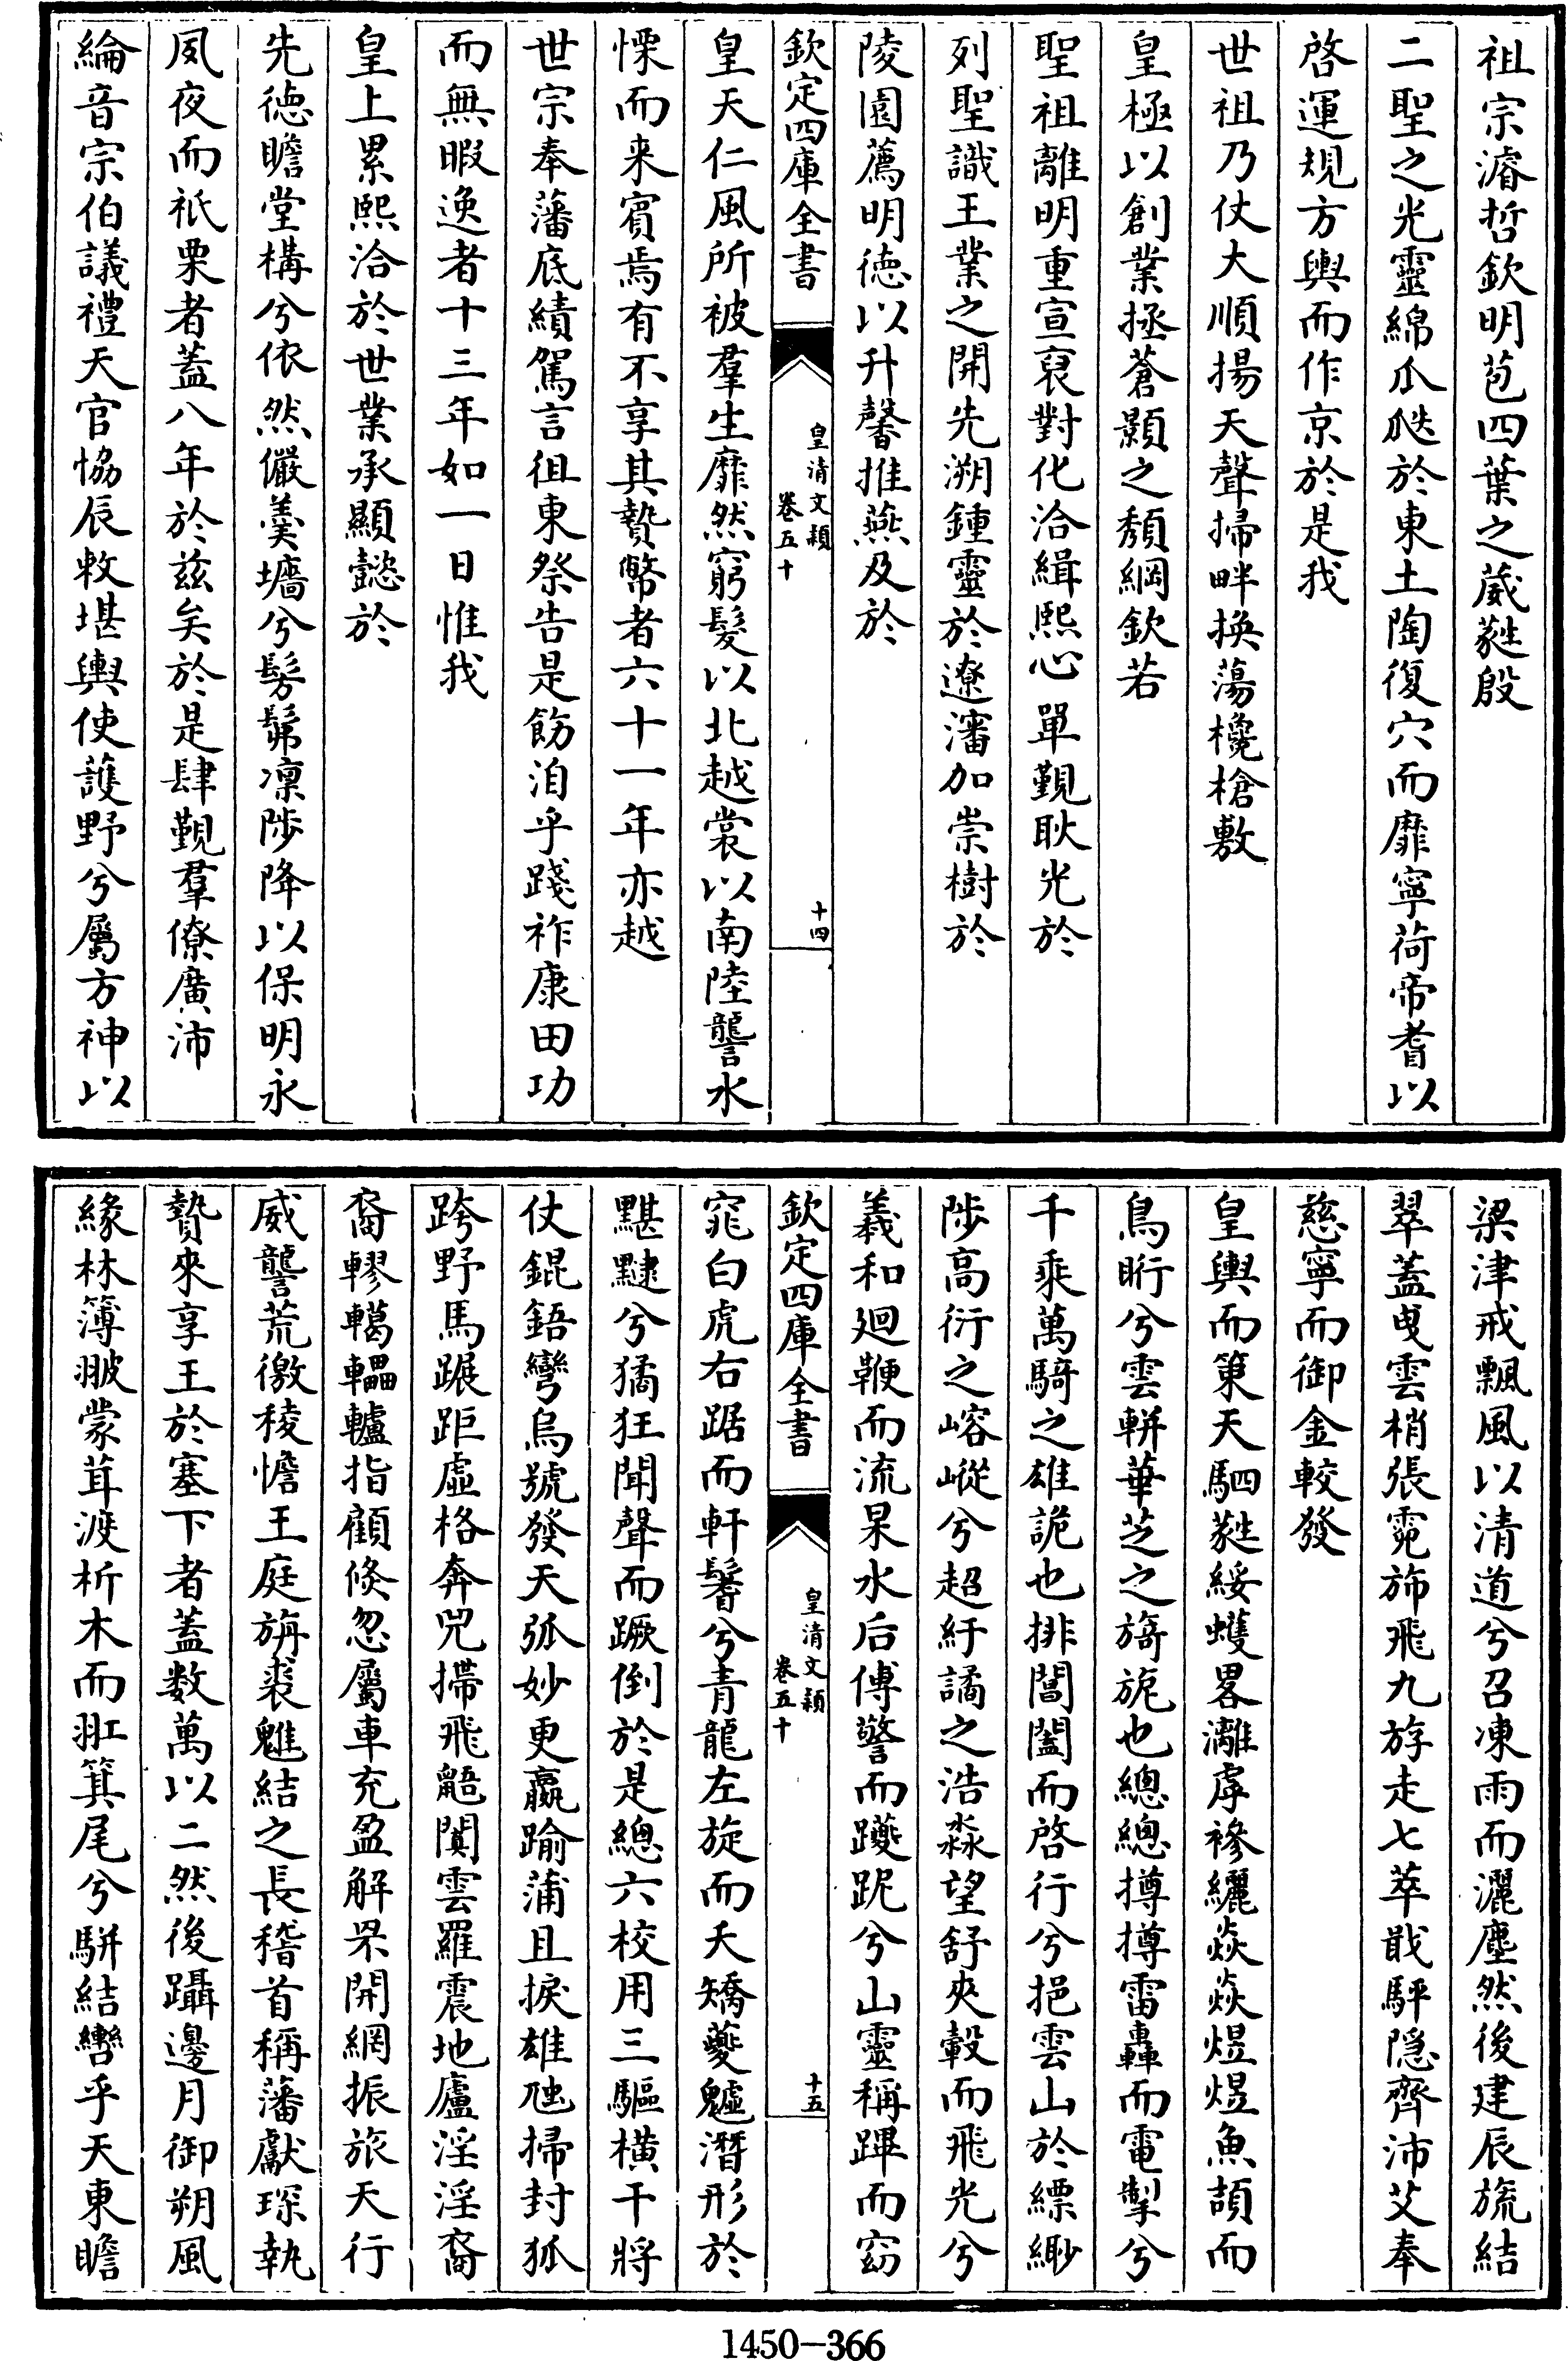 祖宗濬哲欽明苞四葉之葳蕤殷
二聖之光靈綿瓜瓞於東土陶復穴而靡寧荷帝耆以
啓運規方輿而作京於是我
世祖乃仗大順揚天聲掃畔換蕩欃槍敷
皇極以創業拯蒼顥之頹綱欽若
聖祖離明重宣裒對化洽緝熙心單覲耿光於
列聖識王業之開先溯鍾靈於遼瀋加崇樹於
陵園薦明德以升馨推燕及於
欽定四庫全書 皇清文穎 卷五十 十四
皇天仁風所被羣生靡然窮髮以北越裳以南陸讋水
慄而来賓焉有不享其贄幣者六十一年亦越
世宗奉藩底績駕言徂東祭告是飭洎乎踐祚康田功
而無暇逸者十三年如一日惟我
皇上累熙洽於世業承顯懿於
先德瞻堂構兮依然儼羹墻兮髣髴凜陟降以保明永
夙夜而祇栗者蓋八年於兹矣於是肆覲羣僚廣沛
綸音宗伯議禮天官恊辰敕堪輿使護野兮屬方神以
梁津戒飄風以清道兮召凍雨而灑塵然後建辰旒結
翠蓋曳雲梢張霓斾飛九斿走七萃戢駍隠齊沛艾奉
慈寧而御金較發
皇輿而策天駟蕤綏蠖畧漓虖襂纚焱焱煜煜魚頡而
鳥䀪兮雲輧華芝之旖旎也總總撙撙雷轟而電掣兮
千乘萬騎之雄詭也排閶闔而啓行兮挹雲山於縹緲
陟高衍之嵱嵷兮超紆譎之浩淼望舒夾轂而飛光兮
羲和廻鞭而流杲水后傅警而躨跜兮山靈稱蹕而窈
欽定四庫全書 皇清文穎 卷五十 十五
窕白虎右踞而軒鬐兮青龍左旋而夭矯夔魖潛形於
黮䨴兮獝狂聞聲而蹶倒於是總六校用三驅横干將
仗錕鋙彎烏號發天弧妙更羸踰蒲且捩雄虺掃封狐
跨野馬蹍距虚格奔兕掃飛鼯闐雲羅震地廬淫淫裔
裔轇轕轠轤指顧倏忽屬車充盈解罘開網振旅天行
威讋荒徼稜憺王庭旃裘魋結之長稽首稱藩獻琛執
贄來享王於塞下者蓋数萬以二然後躡邊月御朔風
緣林簿翍蒙茸渡析木而羾箕尾兮駢結轡乎天東瞻
1450-366